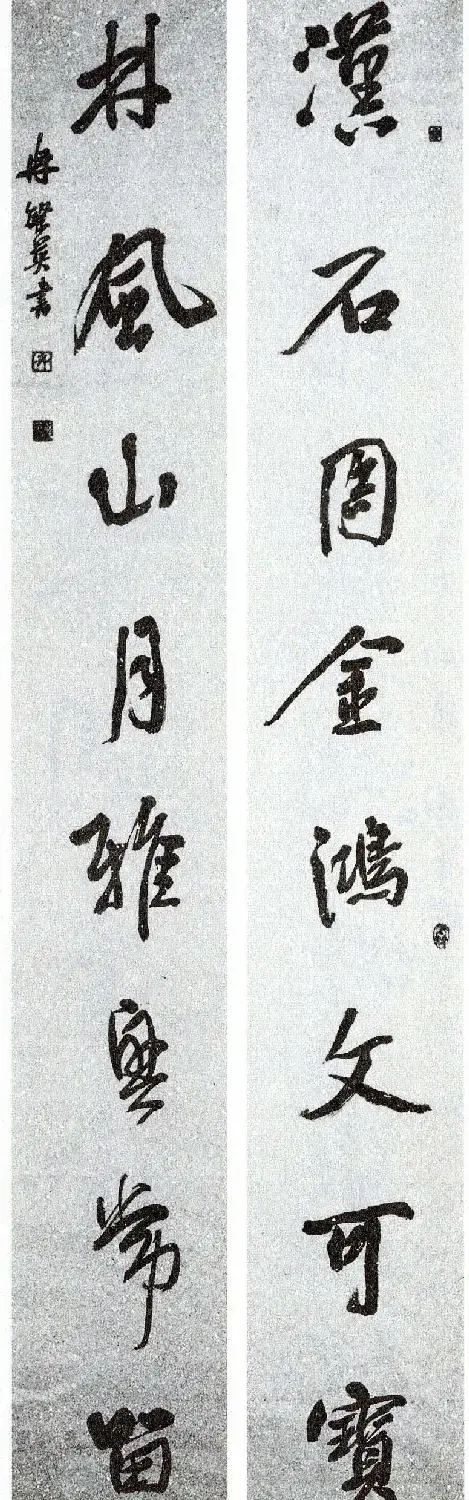 漢石周金鴻文可寶
林風山月雅興常留
書